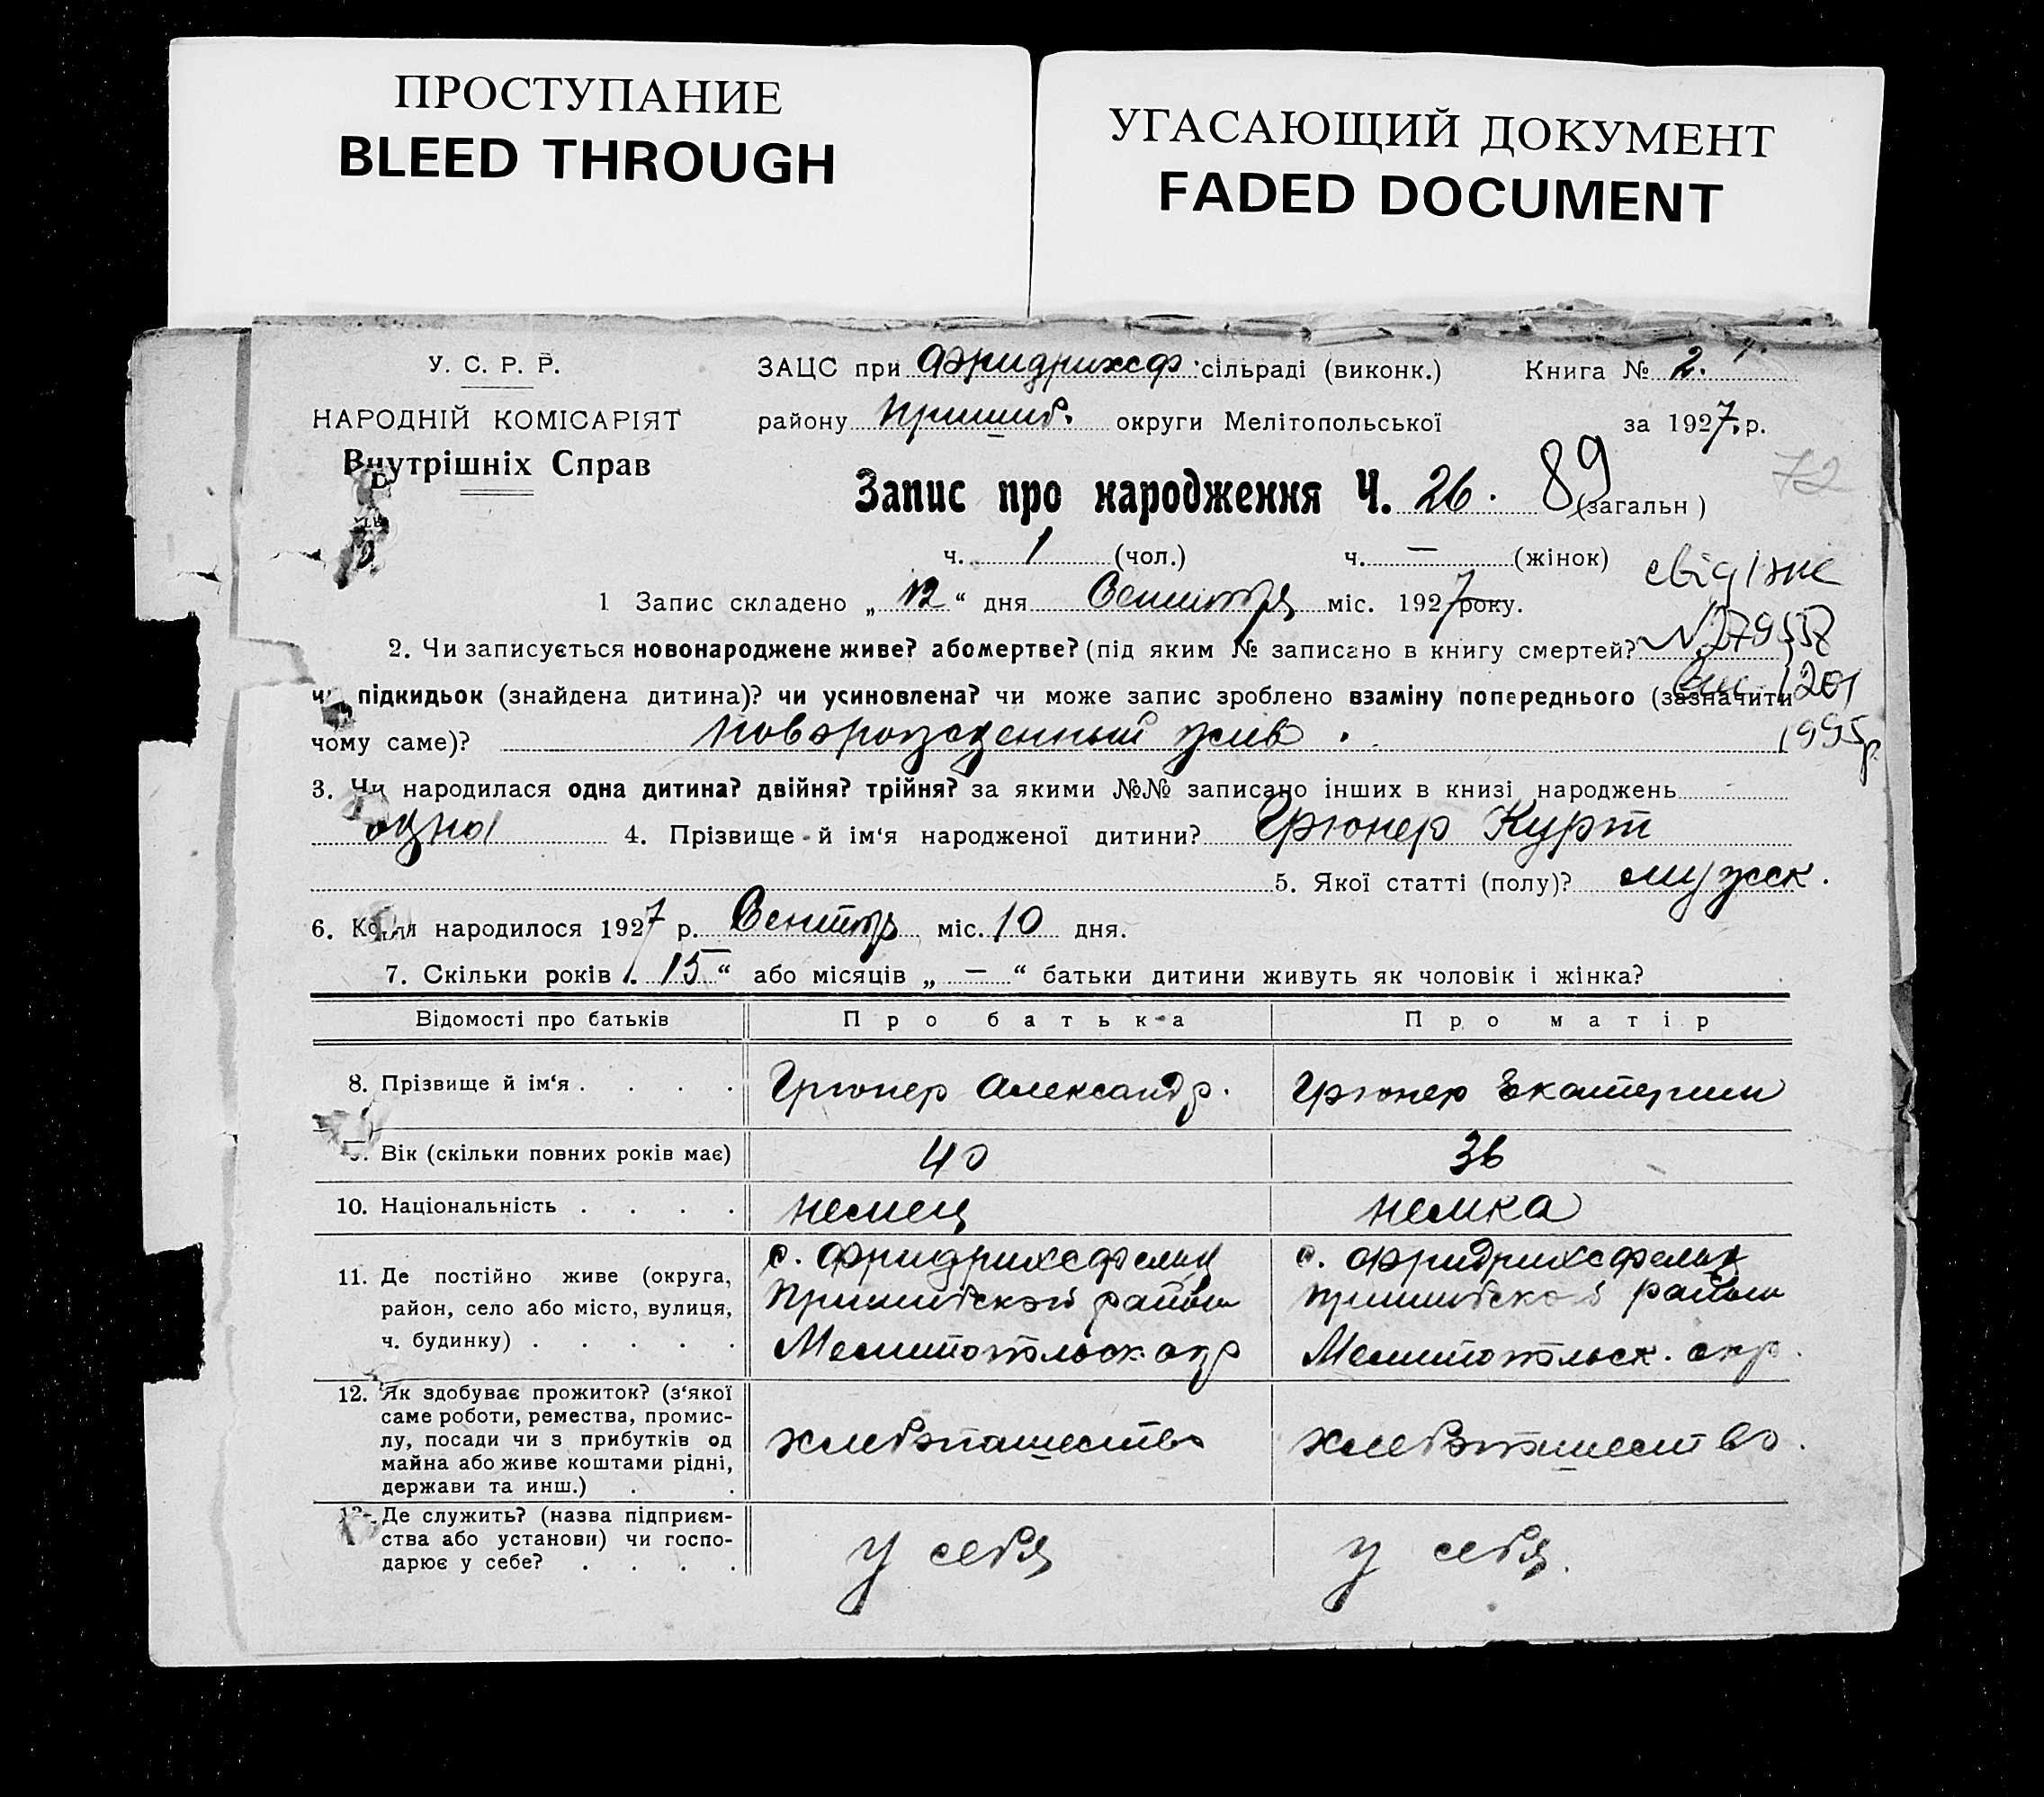 ПРОСТУПАНИЕ
BLEED THROUGH
УГАСАЮЩИЙ ДОКУМЕНТ
FADED DOCUMENT
У. С. Р. Р.
НАРОДНІЙ КОМІСАРІЯТ
Внутрішніх Справ
ЗАЦС при Фридрихсф. сільраді (виконк.) Книга № 2.
району Пришиб. округи Мелітопольської за 1927 р.
72
Запис про народження Ч. 26. 89 (загальн)
ч. 1 (чол.) ч. — (жінок)
1 Запис складено „12“ дня Сентября міс. 1927 року.
2. Чи записується новонароджене живе? або мертве? (під яким № записано в книгу смертей?
чи підкидьок (знайдена дитина)? чи усиновлена? чи може запис зроблено взаміну попереднього (зазначити
чому саме)? новорожденный жив.
1995р.
3. Чи народилася одна дитина? двійня? трійня? за якими №№ записано інших в книзі народжень
одна 4. Прізвище й ім‘я народженої дитини? Грюнер Курт
5. Якої статті (полу)? мужск.
6. Коли народилося 1927 р. Сентябр міс. 10 дня.
7. Скільки років „15“ або місяців „—“ батьки дитини живуть як чоловік і жінка?
Відомості про батьків Про батька Про матір
8. Прізвище й ім‘я . . . . Грюнер Александр. Грюнер Екатерина
9. Вік (скільки повних років має) 40 36
10. Національність . . . . немец немка
11. Де постійно живе (округа,
район, село або місто, вулиця,
ч. будинку) . . . . .
с. Фридрихсфельд
Пришибской района
Мелитопольск окр
с. Фридрихсфельд
Пришибской района
Мелитопольск. окр.
12. Як здобуває прожиток? (з‘якої
саме роботи, ремества, промис-
лу, посади чи з прибутків од
майна або живе коштами рідні,
держави та инш.) . .
хлебопашество хлебопашество.
13. Де служить? (назва підприєм-
ства або установи) чи госпо-
дарює у себе? . . . .
у себя у себя.